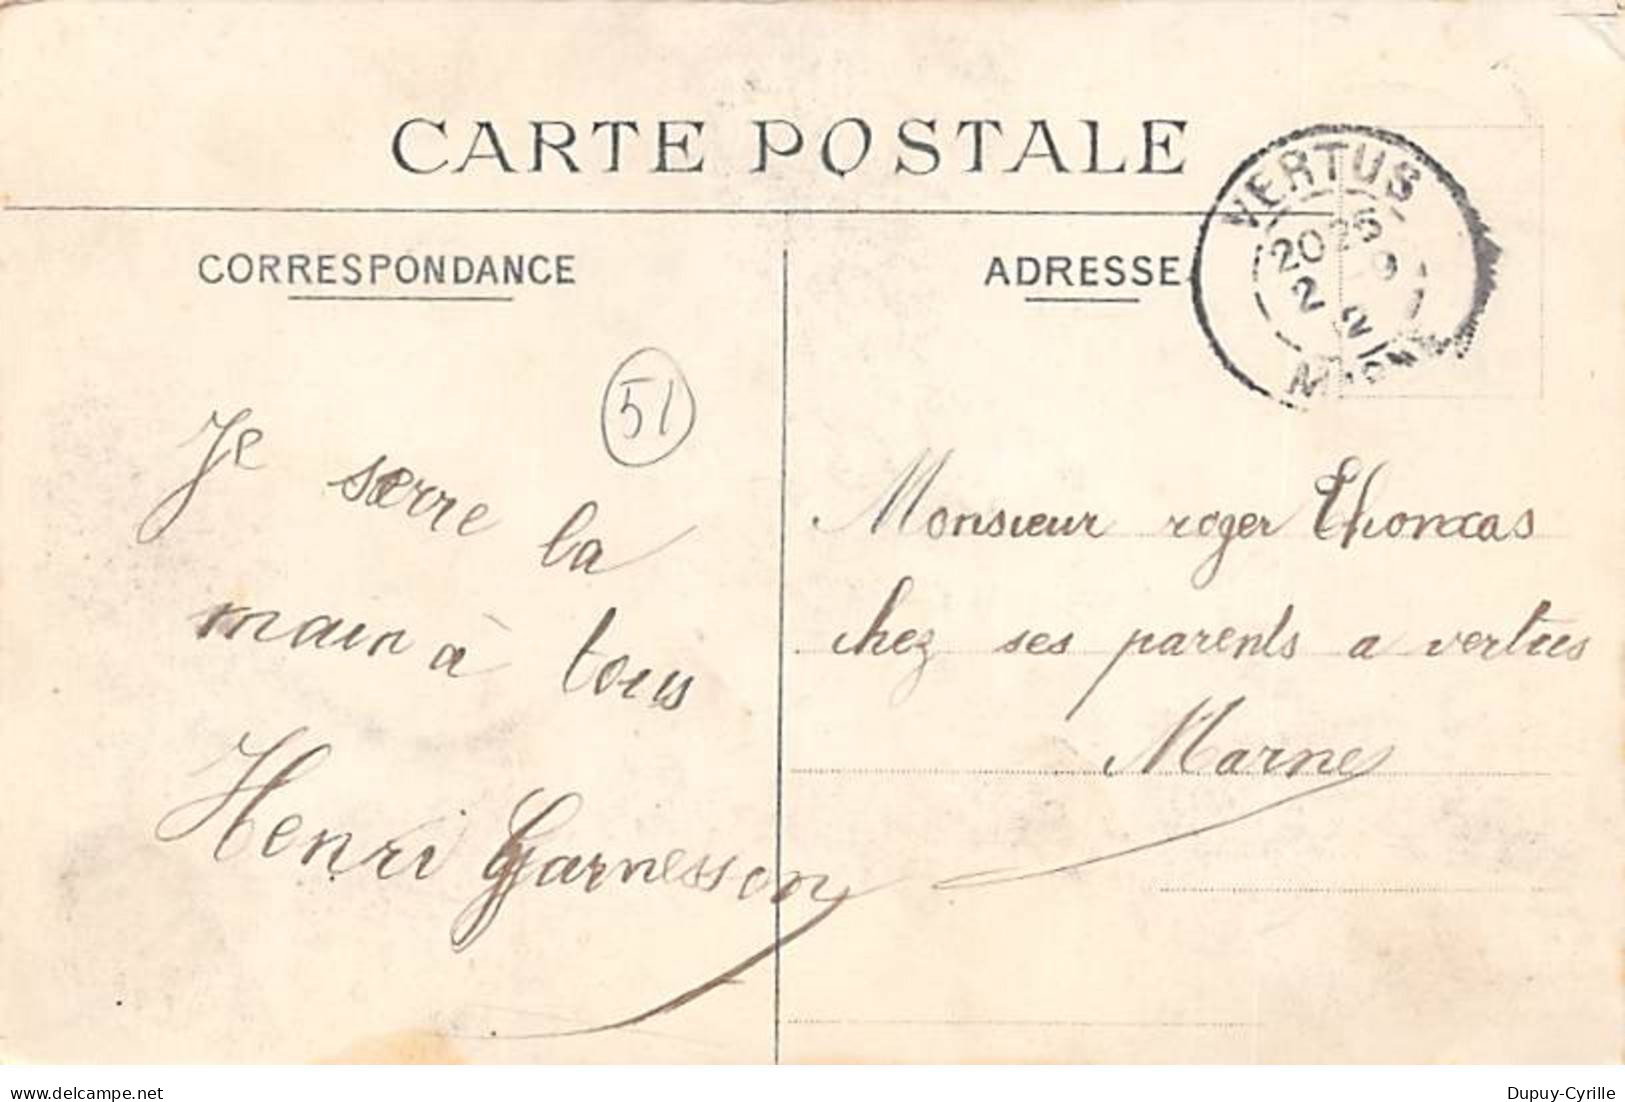 CARTE POSTALE
CORRESPONDANCE
ADRESSE
VERTUS
2025
2
51
Je serre la
main à tous
Henri Garnesson
Monsieur roger Thomas
chez ses parents a vertus
Marne
delcampe.net
Dupuy-Cyrille